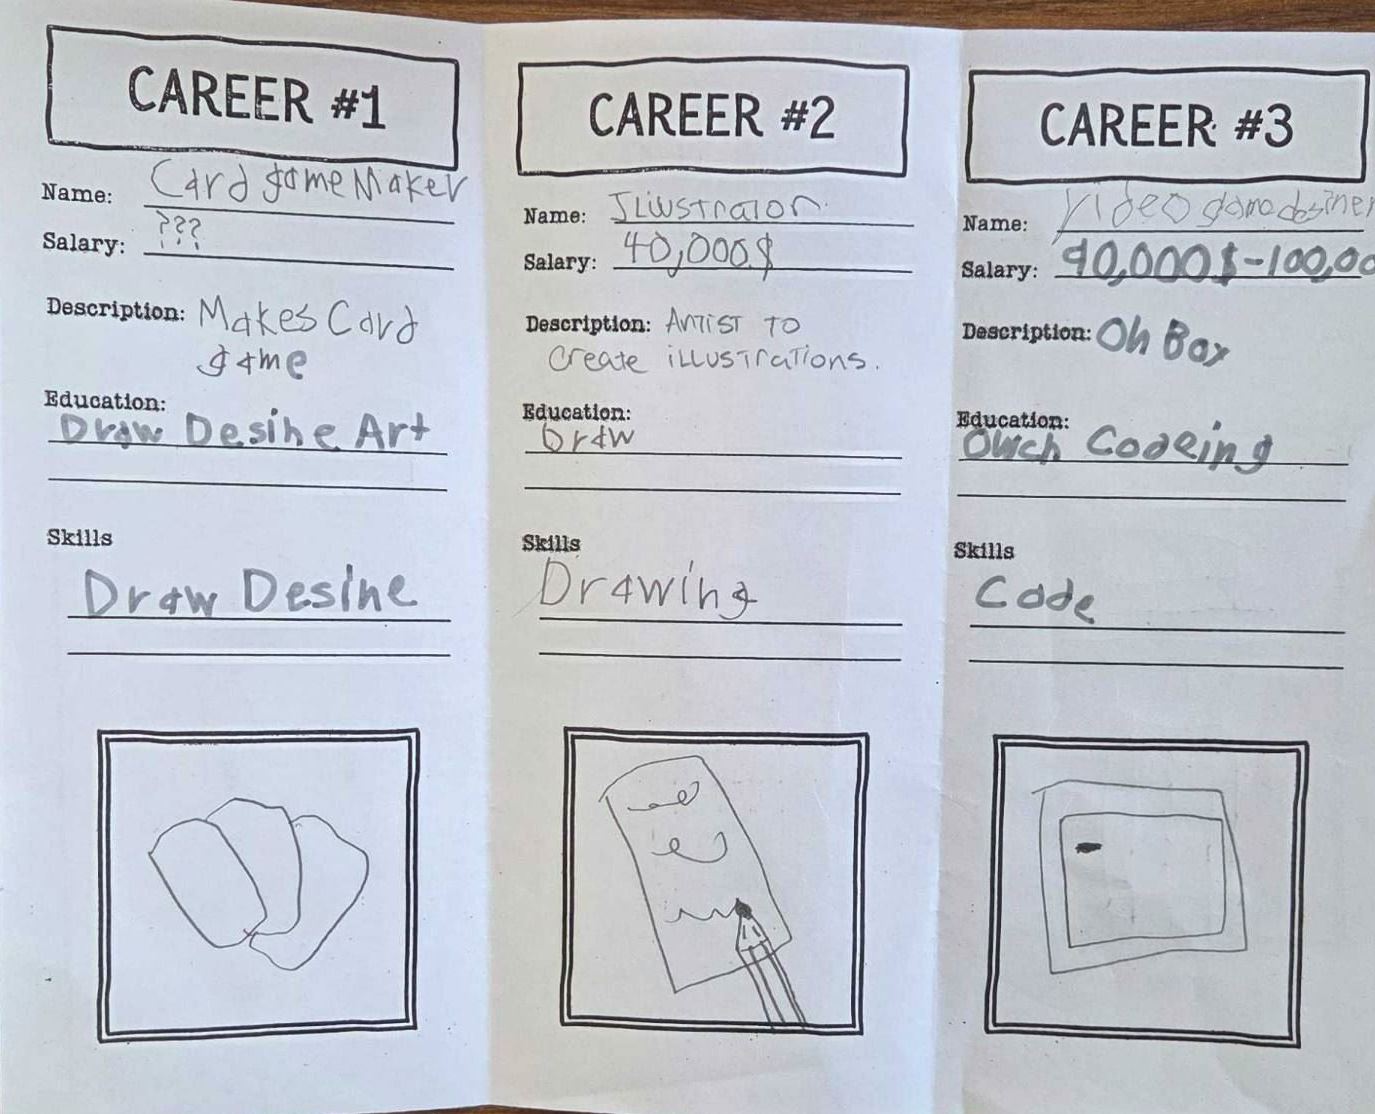 CAREER #1
Name: Card game Maker
Salary: ???
Description: Makes Card
game
Education:
Draw Desine Art
Skills
Draw Desine
CAREER #2
Name: Illustraion
Salary: 40,000$
Description: Artist to
create illustrations.
Education:
Draw
Skills
Drawing
CAREER #3
Name: Video game desiner
Salary: 90,000$-100,00
Description: Oh Boy
Education:
Ouch Codeing
Skills
Code